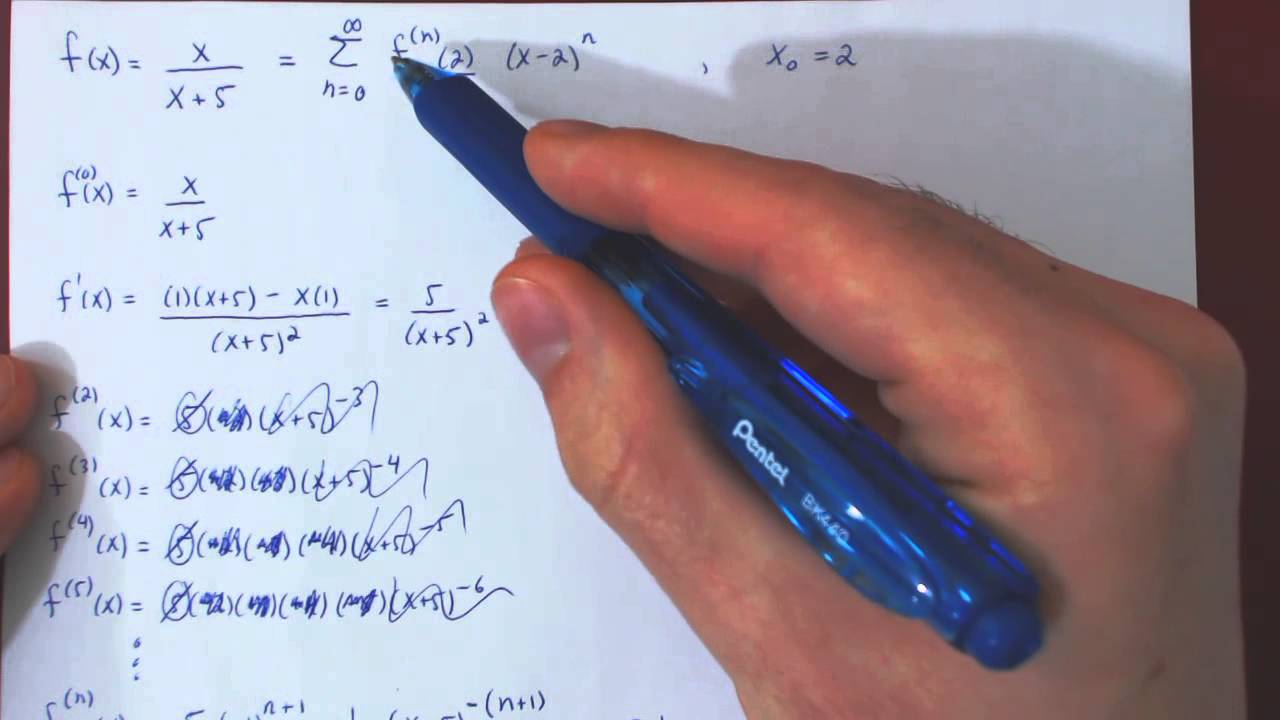 f(x) = x / x+5 = ∞ Σ n=0 f^(n)(2) (x-2)^n , x₀ = 2
f^(0)(x) = x / x+5
f'(x) = (1)(x+5) - x(1) / (x+5)^2 = 5 / (x+5)^2
f^(2)(x) = 5 (x+5)^-3
f^(3)(x) = 5 (x+5)^-4
f^(4)(x) = 5 (x+5)^-5
f^(5)(x) = 5 (x+5)^-6
f^(n) n+1 -(n+1)
Pentel
BK440